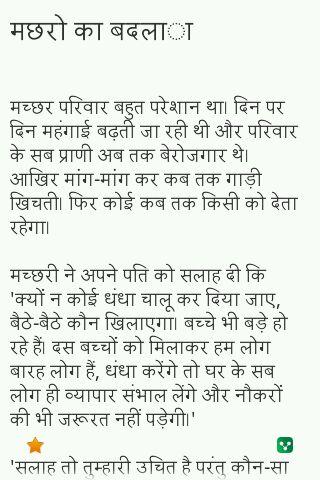 मछरो का बदलााा
मच्छर परिवार बहुत परेशान था। दिन पर
दिन महंगाई बढ़ती जा रही थी और परिवार
के सब प्राणी अब तक बेरोजगार थे।
आखिर मांग-मांग कर कब तक गाड़ी
खिचती। फिर कोई कब तक किसी को देता
रहेगा।
मच्छरी ने अपने पति को सलाह दी कि
'क्यों न कोई धंधा चालू कर दिया जाए,
बैठे-बैठे कौन खिलाएगा। बच्चे भी बड़े हो
रहे हैं। दस बच्चों को मिलाकर हम लोग
बारह लोग हैं, धंधा करेंगे तो घर के सब
लोग ही व्यापार संभाल लेंगे और नौकरों
की भी जरूरत नहीं पड़ेगी।'
'सलाह तो तुम्हारी उचित है परंतु कौन-सा